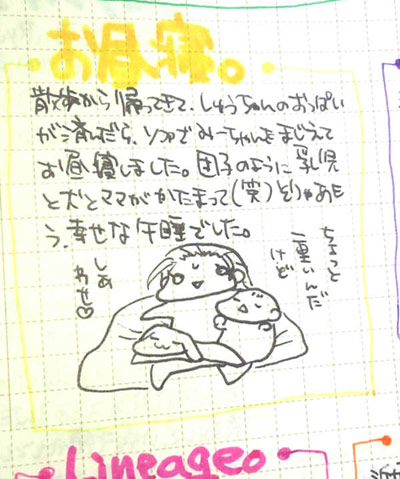 お昼寝。
散歩から帰ってきて、しゅうちゃんのおっぱい
が済んだら、ソファでみーちゃんをまじえて
お昼寝しました。団子のように乳児
と犬とママがかたまって(笑)そりゃあも
う、幸せな午睡でした。
ちょっと
重いんだ
けど
しあ
わせ♡
Lineage。